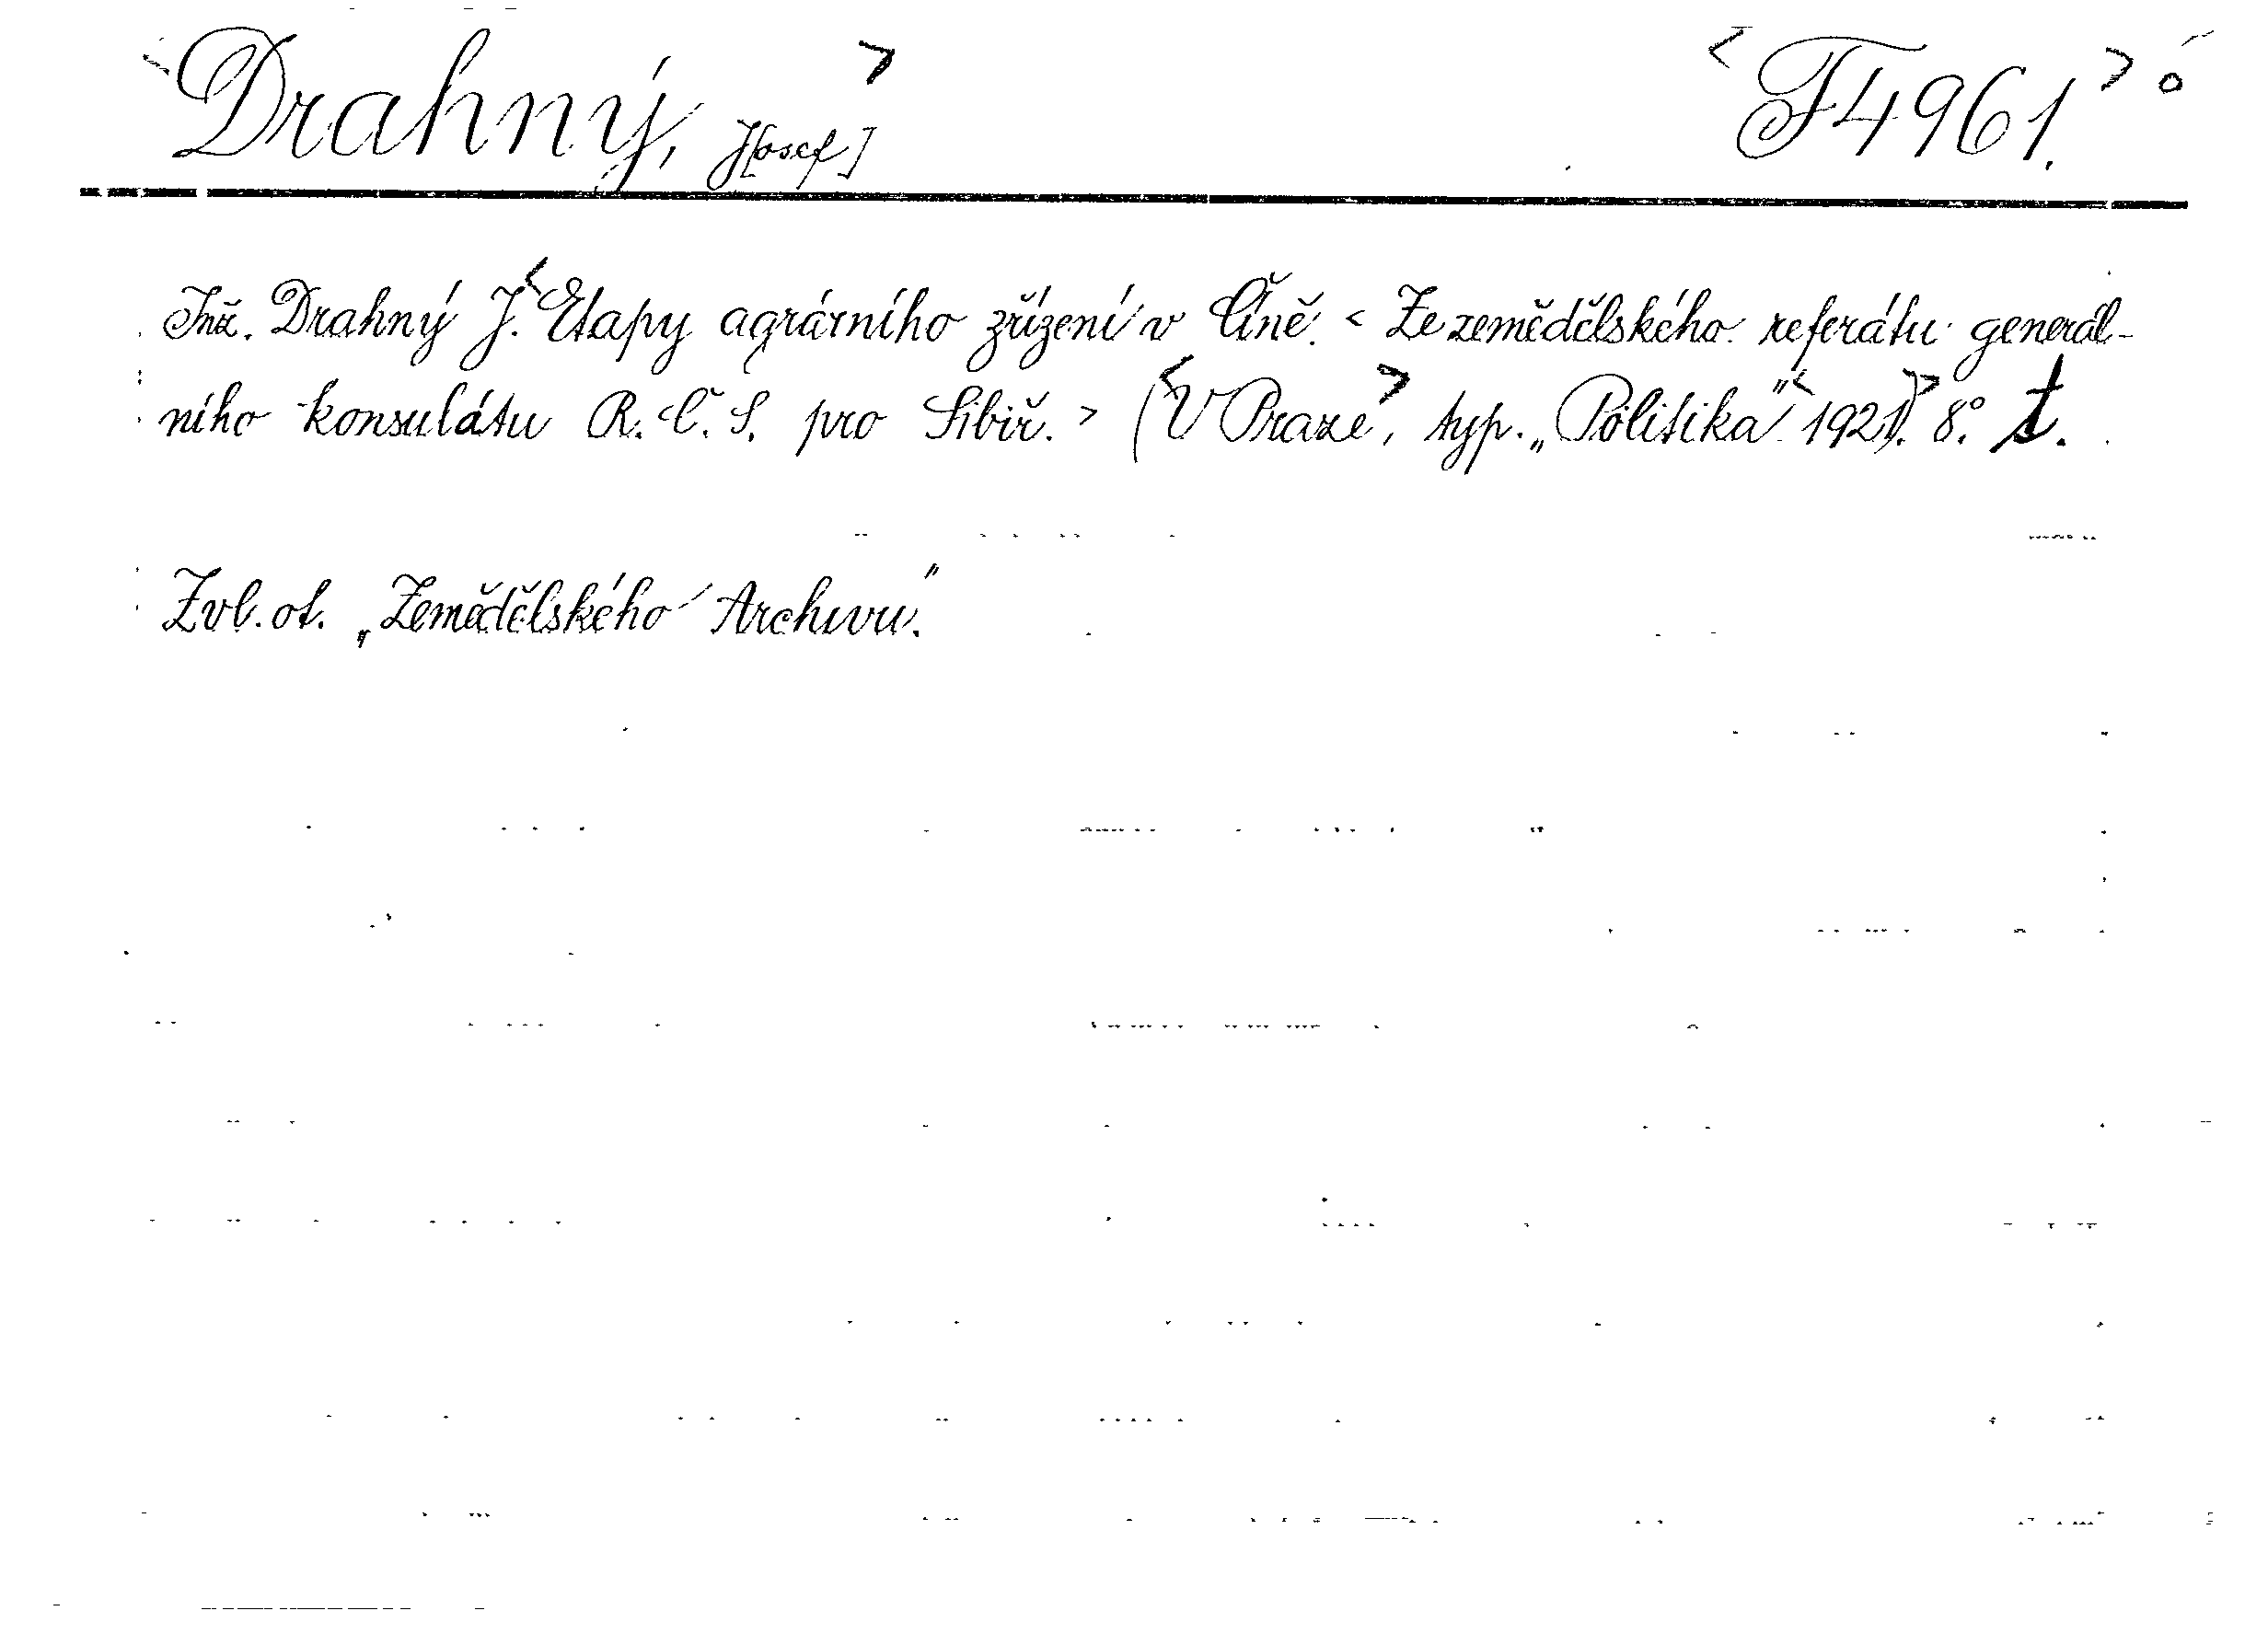 <Drahný, J[osef]> <F4961.>o
Inž. Drahný J. <Etapy agrárního zřízení v Číně. < Ze zemědělského referátu generál-
ního konsulátu R. Č. S. pro Sibiř. > (<V Praze>, typ. „Politika” <1921).> 8.° t.
Zvl. ot. „Zemědělského Archivu.”